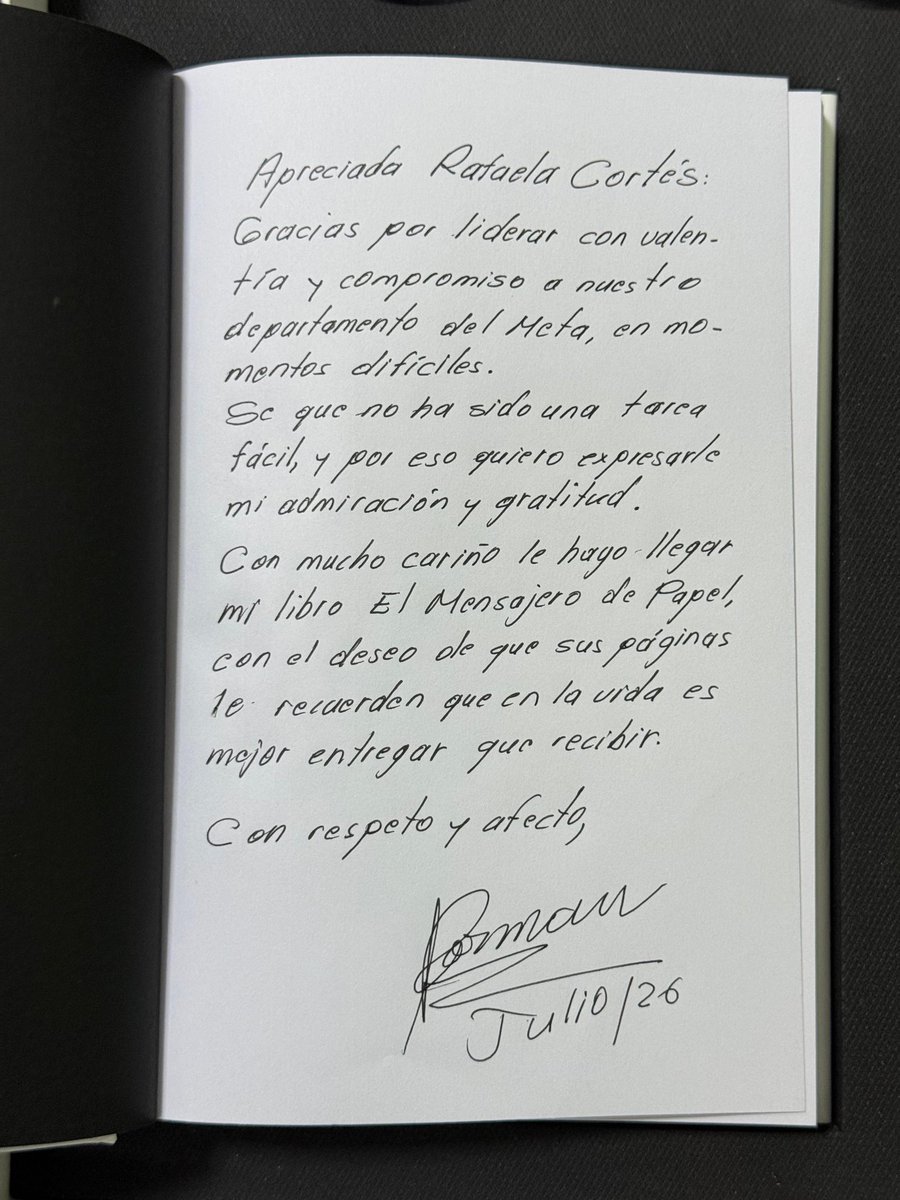 Apreciada Rafaela Cortés:
Gracias por liderar con valen-
tía y compromiso a nuestro
departamento del Meta, en mo-
mentos difíciles.
Se que no ha sido una tarea
fácil, y por eso quiero expresarle
mi admiración y gratitud.
Con mucho cariño le hago llegar
mi libro El Mensajero de Papel,
con el deseo de que sus páginas
le recuerden que en la vida es
mejor entregar que recibir.
Con respeto y afecto,
Julio/26